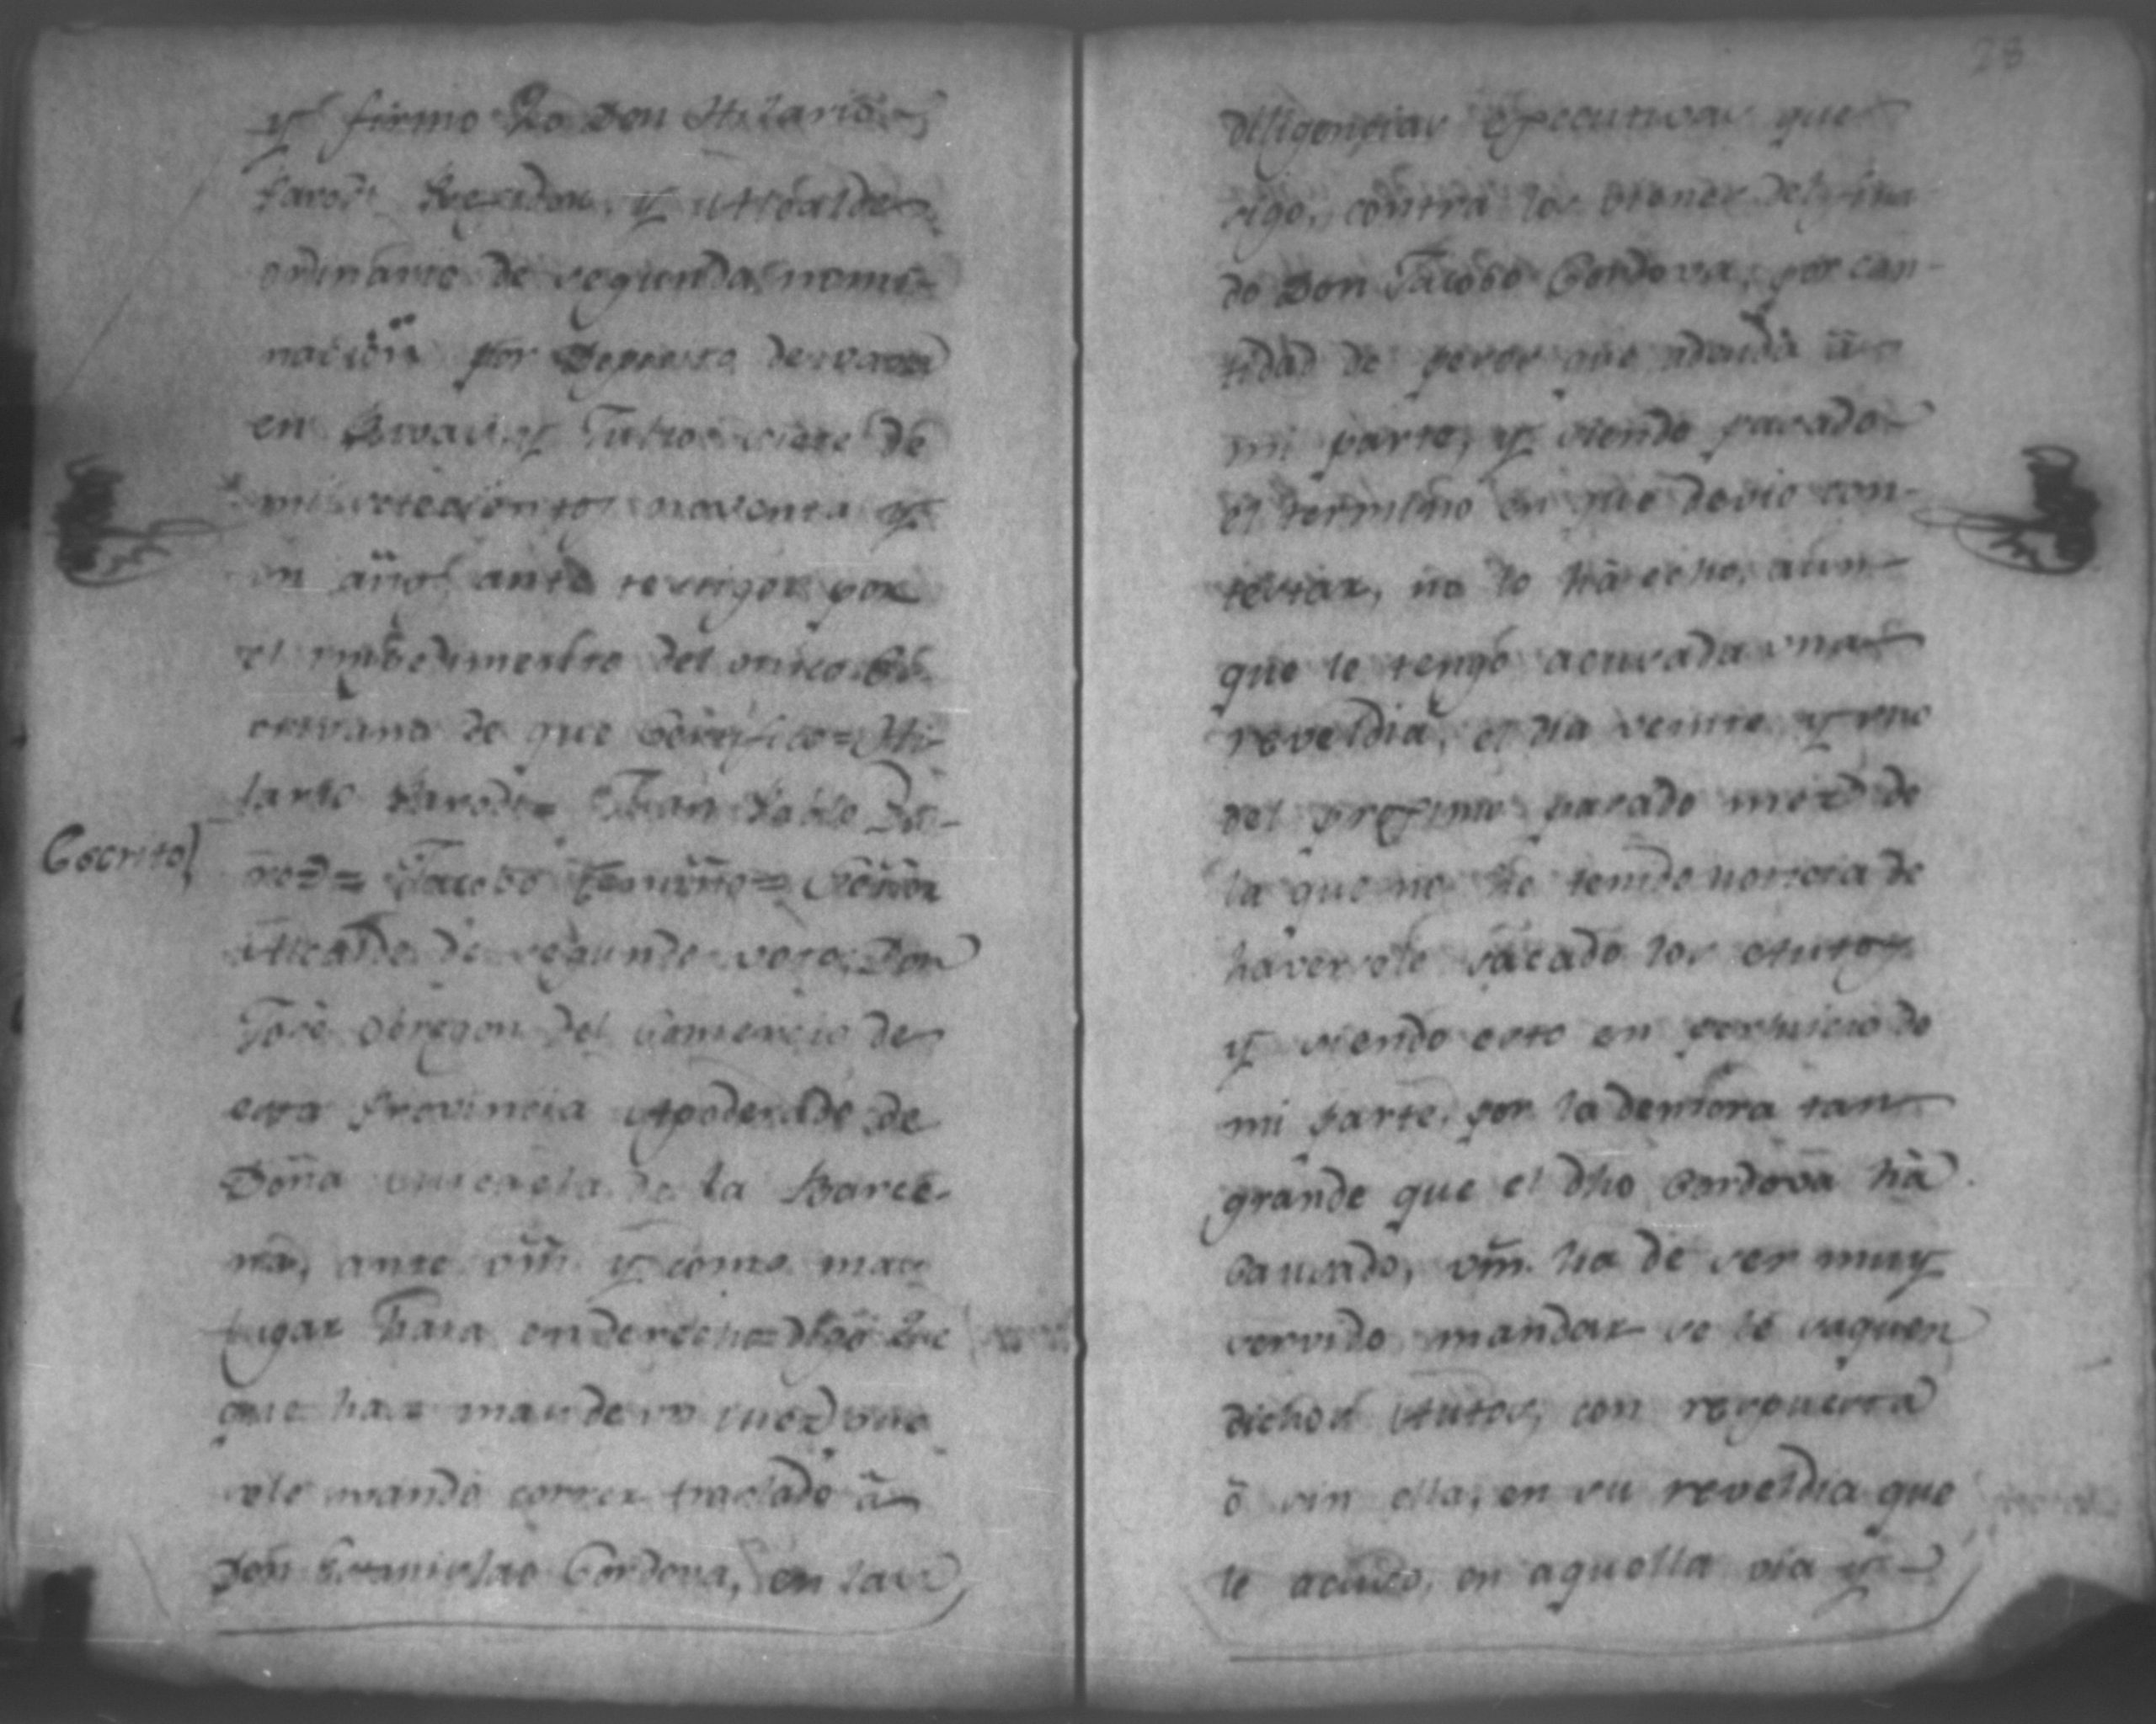 28
y firmo Yo Don Hilario
Parodi Regidor, y Alcalde
ordinario de segunda nomi-
nacion por Deposito de vara
en y Julio siete de
mil setecientos noventa y
un años ante testigos por
el impedimento del unico Es-
crivano de que Certifico = Hi-
lario Parodi = Juan Pablo
= Jacobo = Señor
Escrito
Alcalde de segundo voto, Don
José Obregon del Comercio de
esta Provincia Apoderado de
Doña Micaela de la Barce-
na, ante Vm. y como mas
lugar haia en derecho = digo Que
que haz mas de un mez que
sele mandó correr traslado â
Don Estanislao Cordova, en las
diligencias Executivas que
sigo, contra los vienes del fina
do Don Jacobo Cordova, por can-
tidad de pesos que adeuda â
mi parte, y siendo pasado
el termino en que devio con-
testar, no lo hà echo, aun-
que le tengo acusada una
reveldia, el dia veinte y uno
del proximo pasado mez de
la que no he tenido noticia de
haversele sacado los Autos
y siendo esto en perjuicio de
mi Parte, por la demora tan
grande que el dho Cordova hà
causado, Vm. ha de ser muy
servido mandar se le saquen
dichos Autos, con respuesta
ô sin ella, en su reveldia que
le acuso, en aquella via y